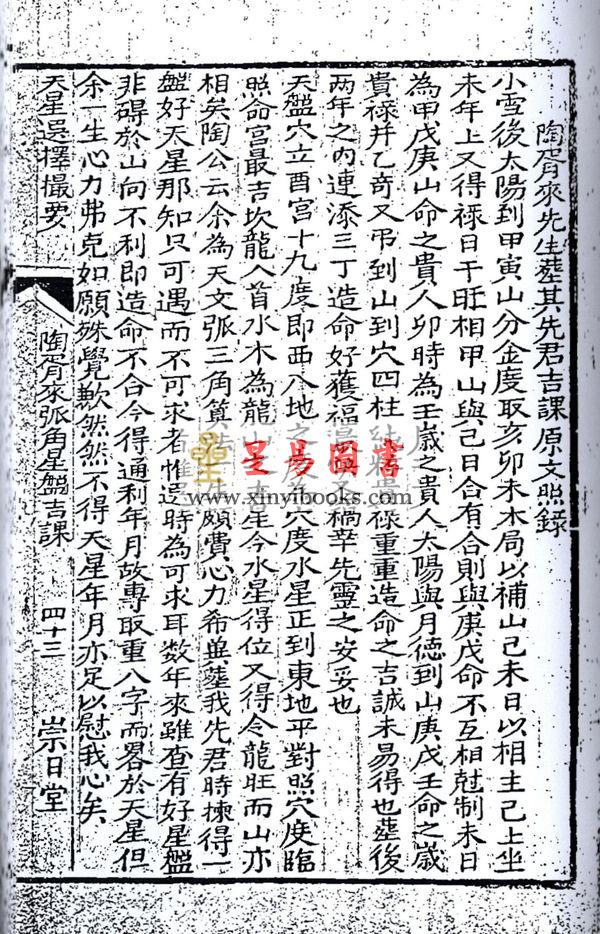 陶胥來先生葬其先君吉課原文照錄
小雪後太陽到甲寅山分金度取亥卯未木局以補山己未日以相主己上坐
未年上又得祿日干旺相甲山與己日合有合則與庚戊命不互相尅制未日
為甲戊庚山命之貴人卯時為壬歲之貴人太陽與月德到山庚戊壬命之歲
貴祿并乙奇又弔到山到穴四柱 祿重重造命之吉誠未易得也葬後
两年之內連添三丁造命好獲福 禍幸先靈之安妥也
天盤穴立酉宮十九度即西入地之 穴度水星正到東地平對照穴度臨
照命宮最吉坎龍入首水木為龍 星今水星得位又得令龍旺而山亦
相矣陶公云余為天文弧三角算 頗費心力希兾葬我先君時揀得一
盤好天星那知只可遇而不可求者惟選時為可求耳数年來雖查有好星盤
非碍於山向不利即造命不合今得通利年月故專取重八字而畧於天星但
余一生心力弗克如願殊覺歉然然不得天星年月亦足以慰我心矣
天星選擇撮要
陶胥來弧角星盤吉課
四十三
崇日堂
星易圖書
www.xinyibooks.com